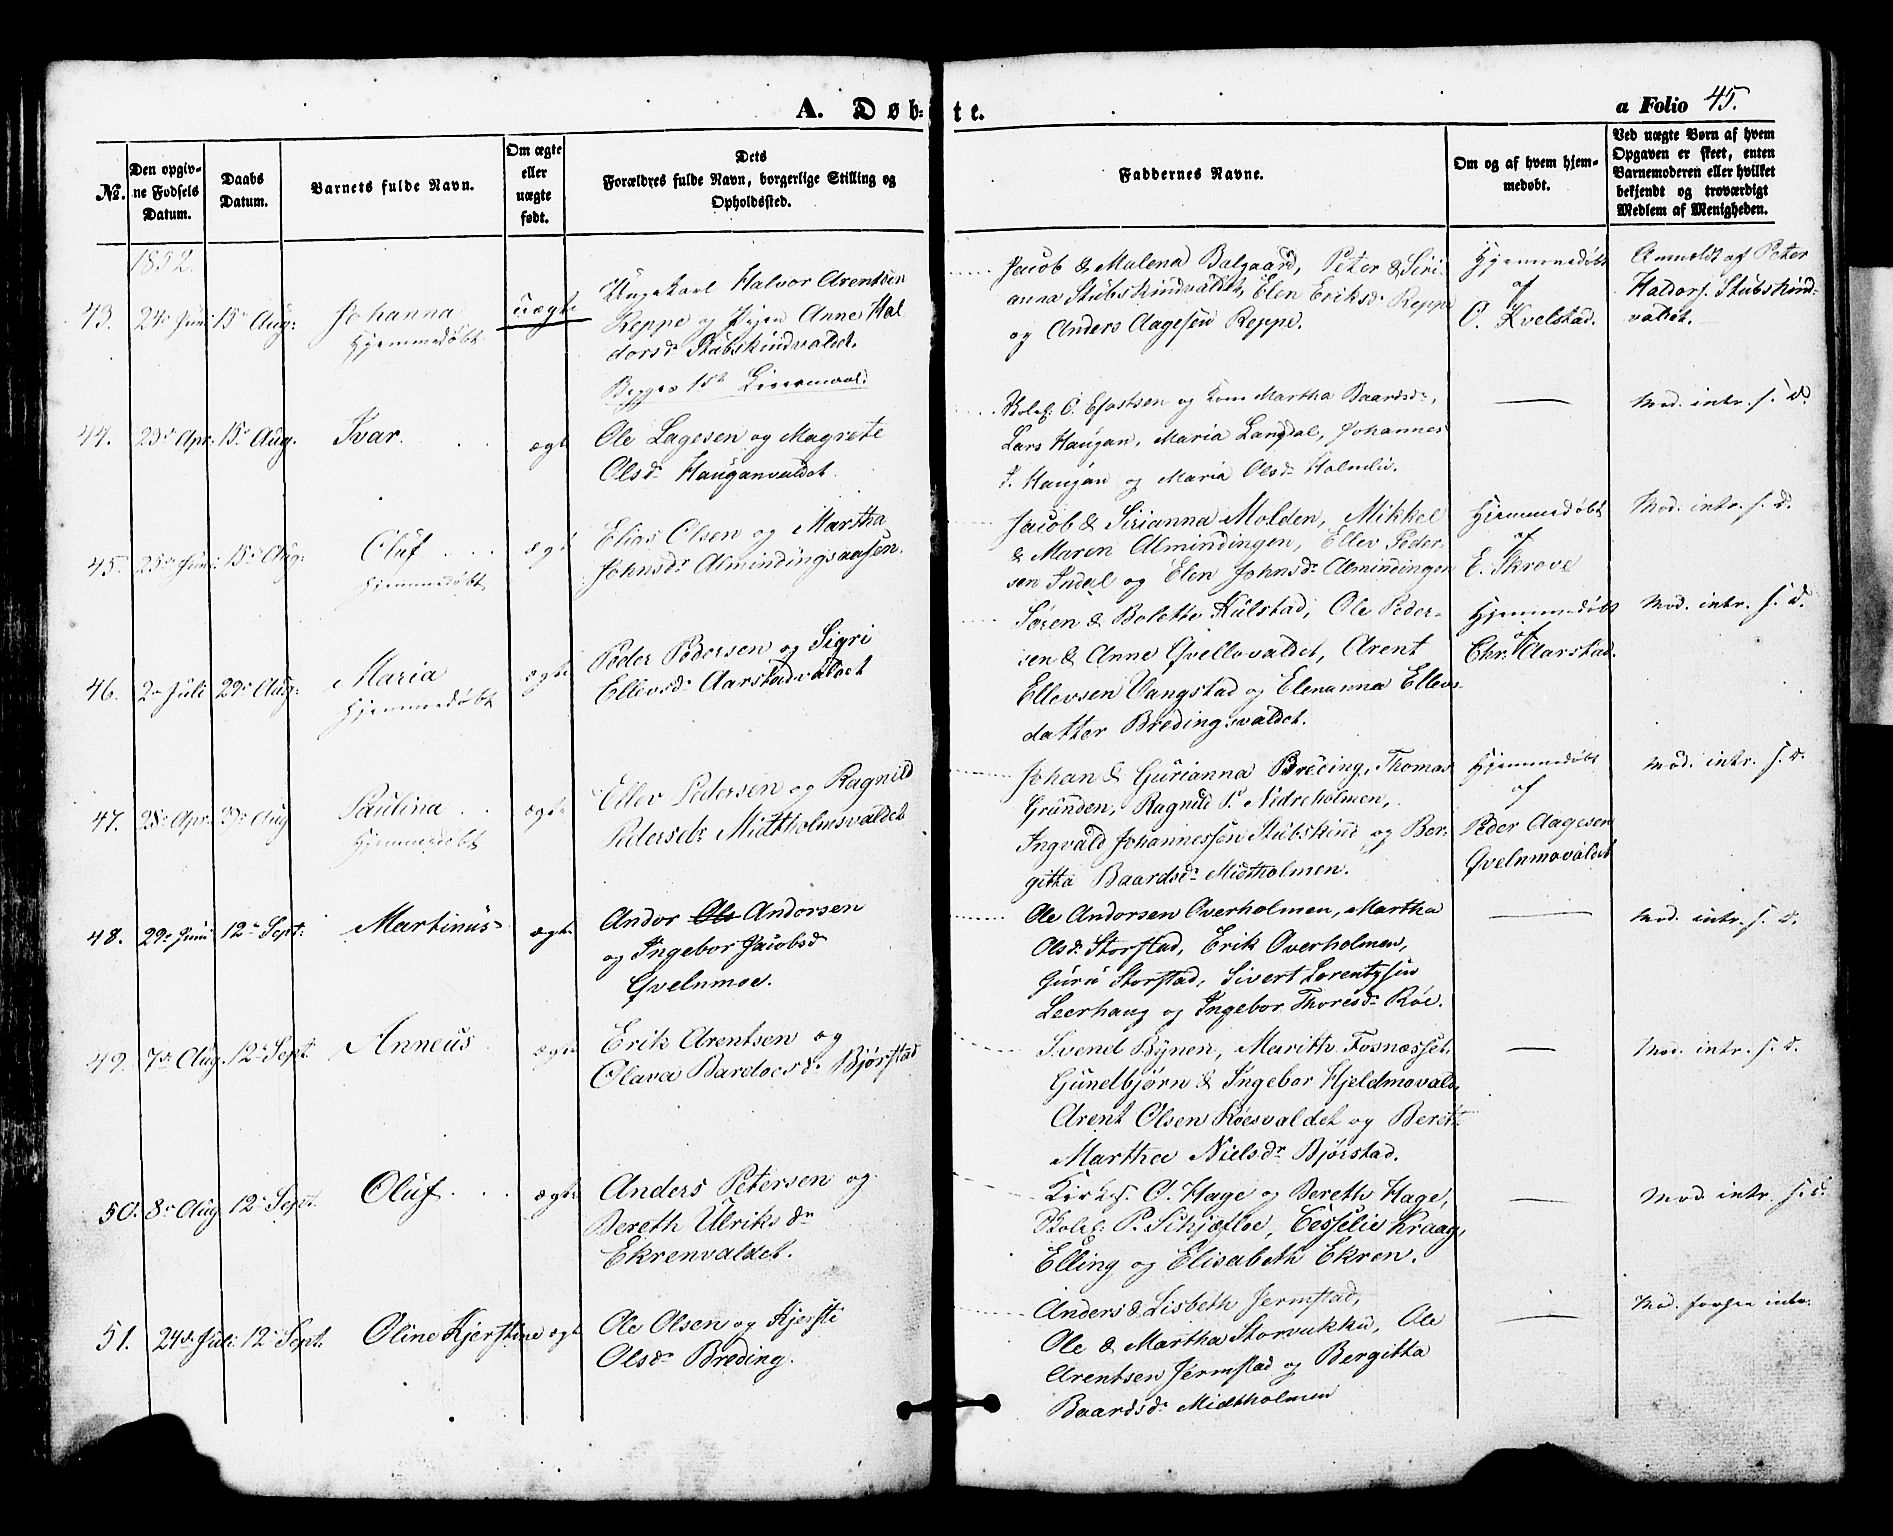 A. Døbte.
a Folio 45.
No.
Den opgivne Fødsels Datum.
Daabs Datum.
Barnets fulde Navn.
Om ægte eller uægte født.
Dets Forældres fulde Navn, borgerlige Stilling og Opholdssted.
Faddernes Navne.
Om og af hvem hjemmedøbt.
Ved uægte Børn af hvem Opgaven er skeet, enten Barnemoderen eller hvilket bekjendt og troværdigt Medlem af Menigheden.
1852.
43. 24de Juni 15de Aug: Johanna
Hjemmedøbt
uægte
Ungekarl Halvor Arentsen
Reppe og Pigen Anne Hal
dorsdr Stubskindvaldet.
Begges 1ste Leiermaal.
Jacob & Malena Balgaard, Peter & Siri-
anna Stubskindvaldet, Elen Eriksdr Reppe
og Anders Aagesen Reppe.
Hjemmedøbt
af
O. Kvelstad.
Anmeldt af Peter
Haldors. Stubskind-
valdet.
44. 23de Apr. 15de Aug. Ivar
ægte
Ole Lagesen og Magrete
Olsdr Hauganvaldet
O. Estsen og Kone Martha Baardsdr,
Lars Haugan, Maria Langdal, Johannes
J. Haugan og Maria Olsdr Holmliv.
—
Mod. intr. s. d.
45. 25de Juni 15de Aug: Oluf
Hjemmedøbt
ægte
Elias Olsen og Martha
Johnsdr Almindingsaasen.
Jacob & Sirianna Molden, Mikkel
& Maren Almindingen, Ellev Peder-
sen Indal og Elen Johnsdr Almindingen
Hjemmedøbt
af
E. Skrove
Mod. intr. s. d.
46. 2de Juli 29de Aug: Maria
Hjemmedøbt
ægte
Peder Pedersen og Sigri
Ellevsdr Aarstadvaldet
Søren & Bolette Kulstad, Ole Peder-
sen & Anne Qvellovaldet, Arent
Ellevsen Vangstad og Elenanna Ellevs
datter Bredingsvaldet.
Hjemmedøbt
af
Chr. Aarstad.
Mod. intr. s. d.
47. 28de Apr. 29de Aug Paulina
Hjemmedøbt
ægte
Ellev Pedersen og Ragnild
Pedersdr Midtholmsvaldet
Johan & Gurianna Breding, Thomas
Grunden, Ragnild P. Nedreholmen,
Ingvald Johannessen Stubskind og Ber-
gitta Baardsdr Midtholmen.
Hjemmedøbt
af
Peder Aagesen
Qvelnmovaldet
Mod. intr. s. d.
48. 29de Juni 12te Sept: Martinus
ægte
Andor Ols Andorsen
og Ingebor Jacobsd
Qvelnmoe.
Ole Andorsen Overholmen, Martha
Olsdr Storstad, Erik Overholmen,
Guru Storstad, Sivert Lorentzsen
Leerhaug og Ingebor Thoresdr Röe.
—
Mod. intr. s. d.
49. 7de Aug. 12te Sept. Anneus
ægte
Erik Arentsen og
Olava Bardoesdr Bjørstad
Svend Bÿnen, Marith Fosnæsset,
Gundbjørn & Ingebor Hjeldmovald.
Arent Olsen Röesvaldet og Berit
Martha Nielsdr Bjørstad.
—
Mod. intr. s. d.
50. 8de Aug. 12te Sept. Oluf
ægte
Anders Petersen og
Bereth Ulriksdr
Ekrenvaldet.
O. Hage og Bereth Hage,
P. Schjefloe, Cesselie Kraag,
Elling og Elisabeth Ekren.
—
Mod. intr. s. d.
51. 24de Juli 12te Sept. Oline Kjerstine ægte
Ole Olsen og Kjersti
Olsdr Breding.
Anders & Lisbeth Jermstad,
Ole & Martha Storvukku, Ole
Arentsen Jermstad og Bergitta
Baardsdr Midtholmen
—
Mod. intr.